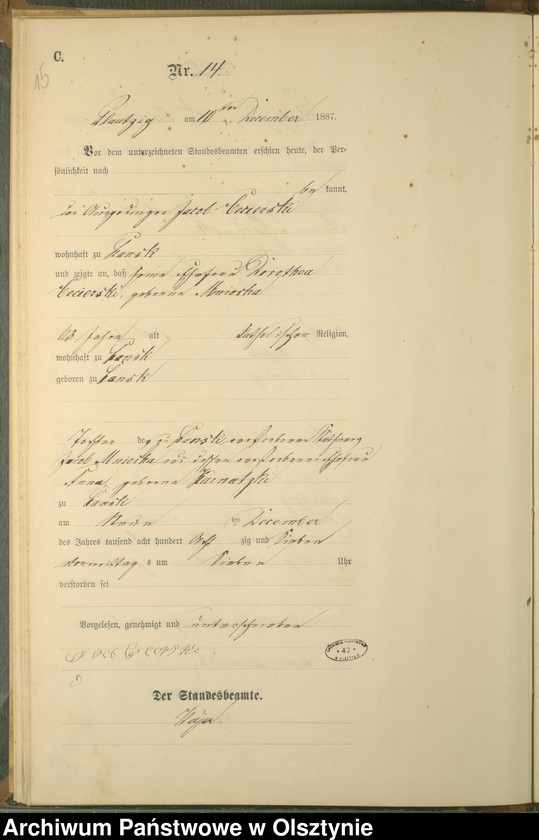 C.
15
Nr. 14.
Plautzig am 10ten December 1887.
Vor dem unterzeichneten Standesbeamten erschien heute, der Per-
sönlichkeit nach
be kannt,
der Jacob Cecierski
wohnhaft zu Lansk
und zeigte an, daß seine Ehefrau Dorothea
Cecierski, geborene Mniocha
Jahre alt katholischer Religion,
wohnhaft zu Lansk
geboren zu Lansk
Tochter des zu Lansk verstorbenen
Jacob Mniocha und dessen verstorbenen Ehefrau
Anna, geborene
zu Lansk
am Neun ten December
des Jahres tausend acht hundert Acht zig und Sieben
Vormittag s um Sieben Uhr
verstorben sei
Vorgelesen, genehmigt und unterschrieben
Der Standesbeamte.
* 47 *
Archiwum Państwowe w Olsztynie